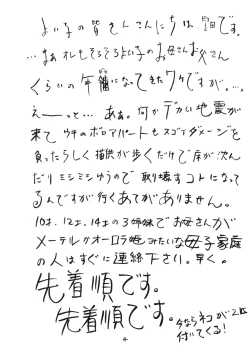 よい子の皆さんこんにちは、空知です。
…まぁオレもそろそろよい子のお母さんお父さん
くらいの年齢になってきたワケですが。…。
えーーっと… あぁ。何かデカい地震が
来て ウチのボロアパートもスゴイダメージを
食ったらしく 猫供が歩くだけで床が沈ん
だり ミシミシゆうので 取り壊すコトになって
るんですが行くあてがありません。
10才、12才、14才の3姉妹でお母さんが
メーテルかオーロラ姫みたいな母子家庭
の人はすぐに連絡下さい。早く。
先着順です。
先着順です。
今ならネコが2匹
付いてくる!